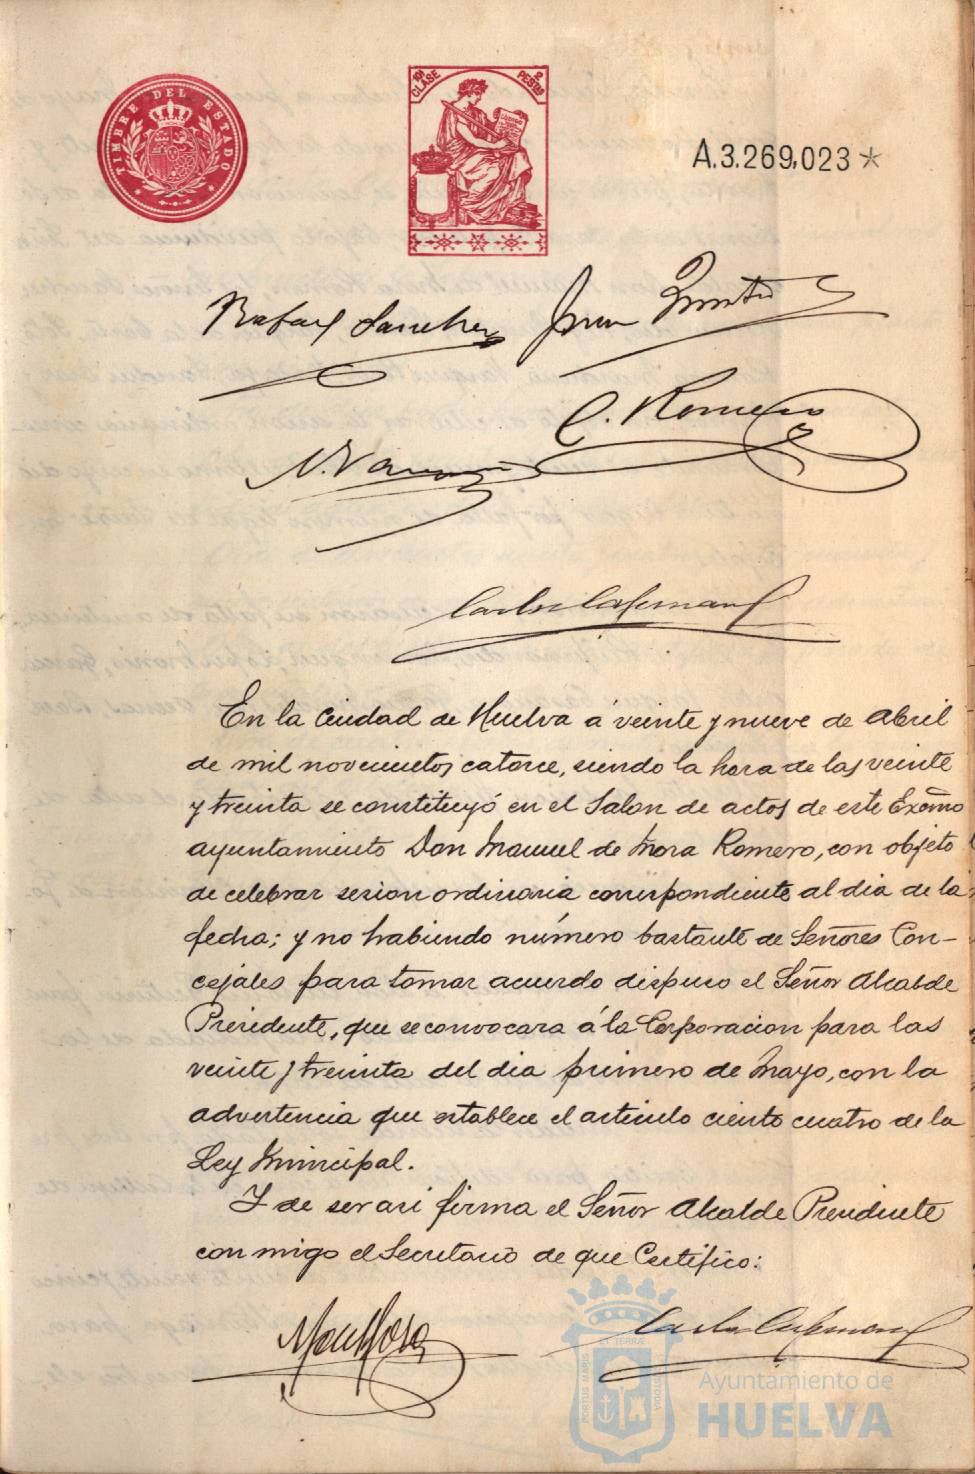 TIMBRE DEL ESTADO
10ª CLASE 2 PESTAS
A.3.269,023 *
Rafael Sanchez
C. Romero
En la Ciudad de Huelva á veinte y nueve de Abril
de mil novecientos catorce, siendo la hora de las veinte
y treinta se constituyó en el Salon de actos de este Excmo
ayuntamiento Don Manuel de Mora Romero, con objeto
de celebrar sesion ordinaria correspondiente al dia de la
fecha; y no habiendo número bastante de Señores Con-
cejales para tomar acuerdo dispuso el Señor Alcalde
Presidente, que se convocara á la Corporacion para las
veinte y treinta del dia primero de Mayo, con la
advertencia que establece el articulo ciento cuatro de la
Ley Municipal.
Y de ser asi firma el Señor Alcalde Presidente
con migo el Secretario de que Certifico:
PORTUS MARIS ET TERRAE CUSTODIA
Ayuntamiento de
HUELVA